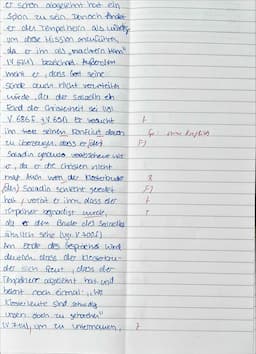 er schon abgelehnt hat ein
Spion zu sein. Dennoch findet
er den Tempelherrn als würdig
um diese Mission anzunehmen,
da er ihn als
(V. ) bezeichnet. Außerdem
meint er, dass Gott seine
Sünde auch nicht verurteilen
würde, da der Saladin ein
Feind der Christenheit sei (vgl.
V. 686f. ). Er versucht
ihn trotz seinem Konflikt davon
zu überzeugen, dass er jetzt
Saladin genauso
er, da er die Christen nicht
mag. Auch wenn der Klosterbruder
Saladin schlecht geredet
hat, verrät er ihm, dass der
Tempelherr begnadigt wurde,
als er dem Bruder des Saladins
ähnlich sehe (vgl. V. 700f.)
Am Ende des Gesprächs wird
deutlich, dass der Klosterbru-
der sich freut, dass der
Tempelherr abgelehnt hat und
betont noch einmal: „Wir
Klosterleute sind schuldig
unsern Obern zu gehorchen“
(V. ), um zu untermauern,